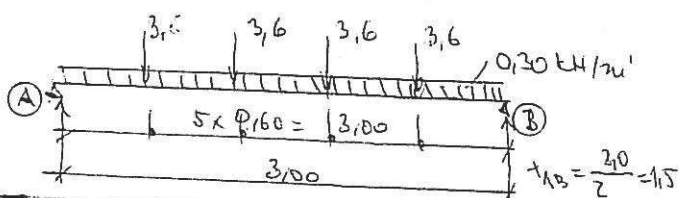 3,6 3,6 3,6 3,6
0,30 kH/m'
A
B
5 x 0,60 = 3,00
3,00
= 3,0/2 = 1,5